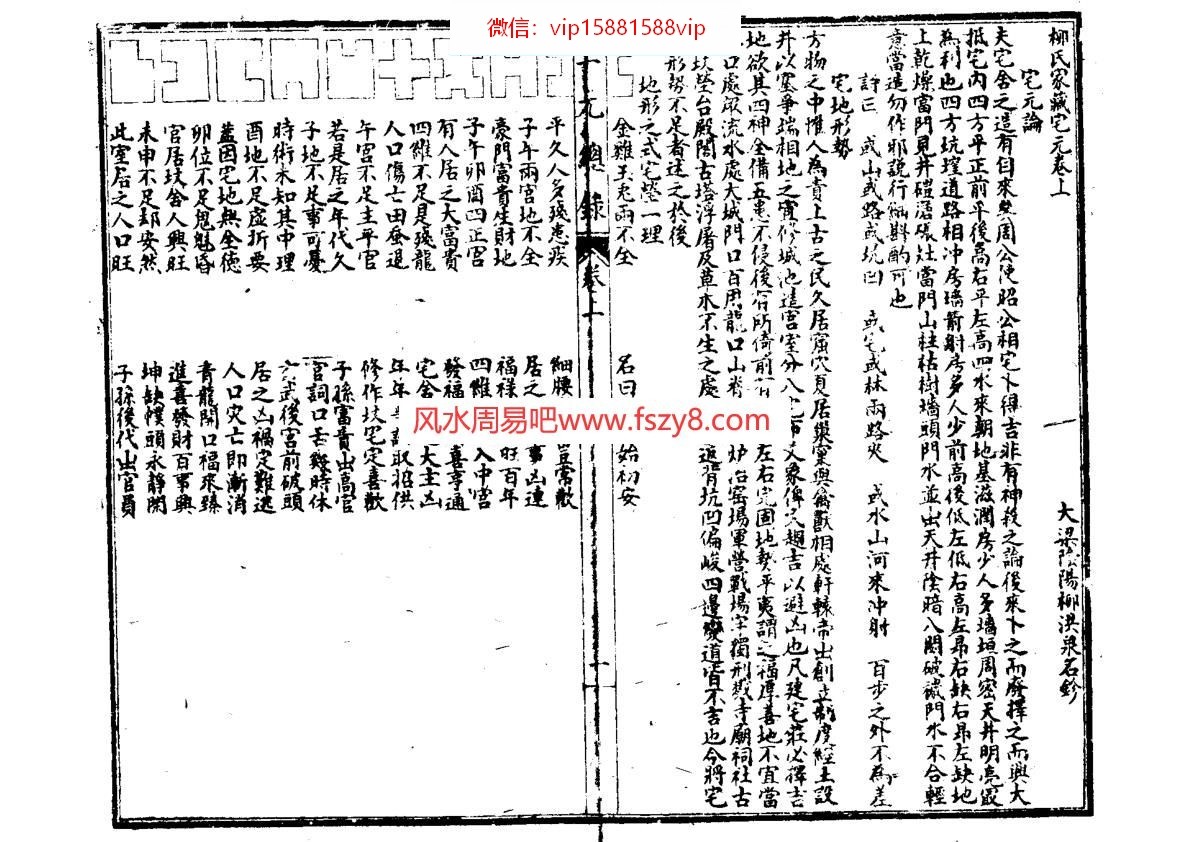 微信：vip15881588vip
柳氏家藏宅元卷上
大梁陰陽柳洪泉石鈔
宅元論
夫宅舍之這有自來矣周公使昭公相宅卜得吉非有神殺之論後來卜之而廢擇之而興大
抵宅内四方平正前平後高右平左高四水來朝地基滋潤房少人多墻垣周密天井明亮最
為利也四方坑堭道路相冲房墻箭射房多人少前高後低左低右高左昂右缺右昂左缺地
上乾燥當門見井碓磨碾灶當門山柱枯樹墻頭門水並出天井陰暗八関破穢門水不合輕
意當造勿作邪説行斟酌可也
詳曰 或山或路或坑凹 或宅或林兩路夾 或水山河來冲射 百步之外不為差
宅地形勢
方物之中惟人為貴上古之民久居窟穴頁居巢室與禽獸相處軒轅帝出創立制度經土設
井以塞爭端相地之宜修城池這宮室分八宅布爻象俾宅趨吉以避凶也凡建宅莊必擇吉
地欲其四神全備五患不侵後有所倚前有左右完固地勢平夷謂之福厚善地不宜當
口處眾流水處大城門口百川龍口山脊炉冶窑場軍營戰場字獨刑獄寺廟祠社古
坟塋台殿閣古塔浮屠及草木不生之處追背坑凹偏峻四邊變道皆不吉也今將宅
形勢不足者述之於後
地形之式宅塋一理
金雞玉兔兩不全
名曰
始初安
元總錄
卷上
一
平久人多殘患疾
細腰
當常歉
子午兩宮地不全
居之
事凶連
豪門富貴生財地
福祿
旺百年
子午卯酉四正宮
四維
入中宮
有人居之大富貴
發福
喜亨通
四維不足是殘龍
宅舍
大主凶
人口傷亡田蚕退
年年
取招供
午宮不足主平官
修作坟宅定喜歡
若是居之年代久
子孫富貴出高官
子地不足事可憂
官詞口舌幾時休
時術未知其中理
玄武後宮前破頭
酉地不足虚折要
居之凶禍定難逃
蓋因宅地無全德
人口灾亡即漸消
卯位不足鬼魅昏
青龍開口福來臻
官居坟舍人興旺
進喜發財百事興
未申不足却安然
坤缺幞頭永靜閑
此室居之人口旺
子孫後代出官員
风水周易吧www.fszy8.com